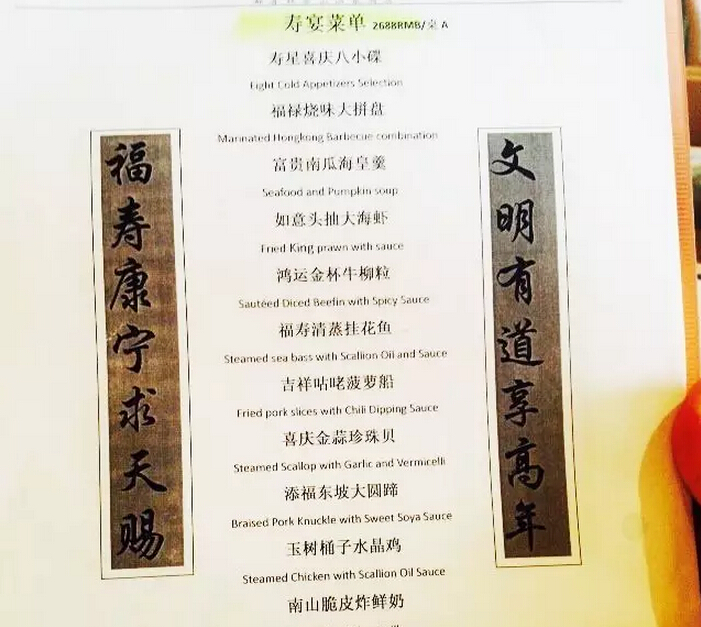 寿宴菜单 2688RMB/桌 A
寿星喜庆八小碟
Eight Cold Appetizers Selection
福禄烧味大拼盘
Marinated Hongkong Barbecue combination
富贵南瓜海皇羹
Seafood and Pumpkin soup
如意头抽大海虾
Fried King prawn with sauce
鸿运金杯牛柳粒
Sautéed Diced Beefin with Spicy Sauce
福寿清蒸挂花鱼
Steamed sea bass with Scallion Oil and Sauce
吉祥咕咾菠萝船
Fried pork slices with Chili Dipping Sauce
喜庆金蒜珍珠贝
Steamed Scallop with Garlic and Vermicelli
添福东坡大圆蹄
Braised Pork Knuckle with Sweet Soya Sauce
玉树桶子水晶鸡
Steamed Chicken with Scallion Oil Sauce
南山脆皮炸鲜奶
文明有道享高年
福寿康宁求天赐